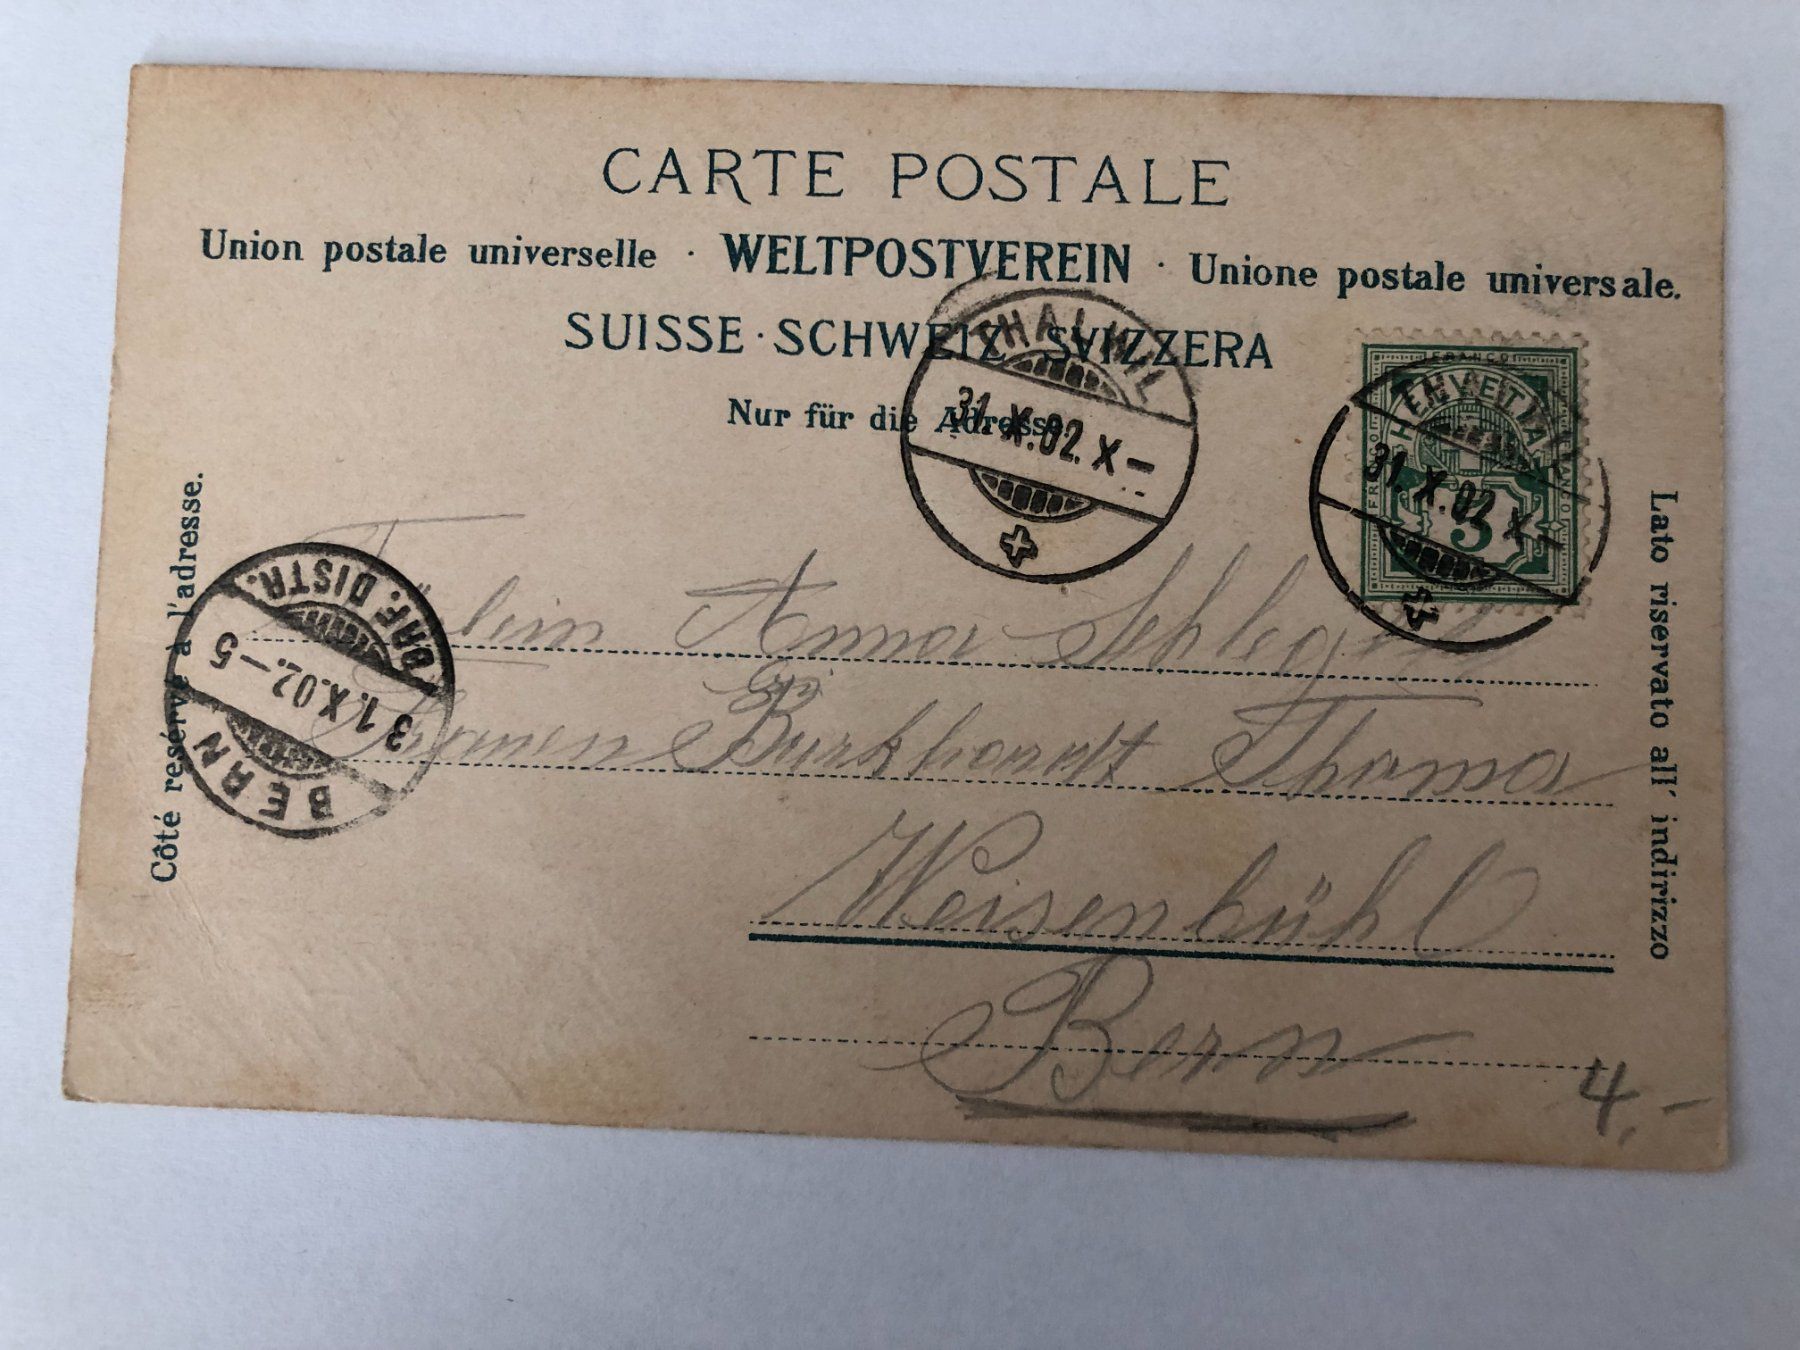 CARTE POSTALE
Union postale universelle · WELTPOSTVEREIN · Unione postale universale.
SUISSE · SCHWEIZ SVIZZERA
Nur für die Adresse
THALWIL
31. X.02. X –
FRANCO
HELVETIA
FRANCO FRANCO
31. X.02 X –
3
Côté reservé à l'adresse.
Lato riservato all' indirizzo
BRF. DISTR.
31.X.02.–5
BERN
Anna
Thoma
Weisenbühl
Bern
4.–